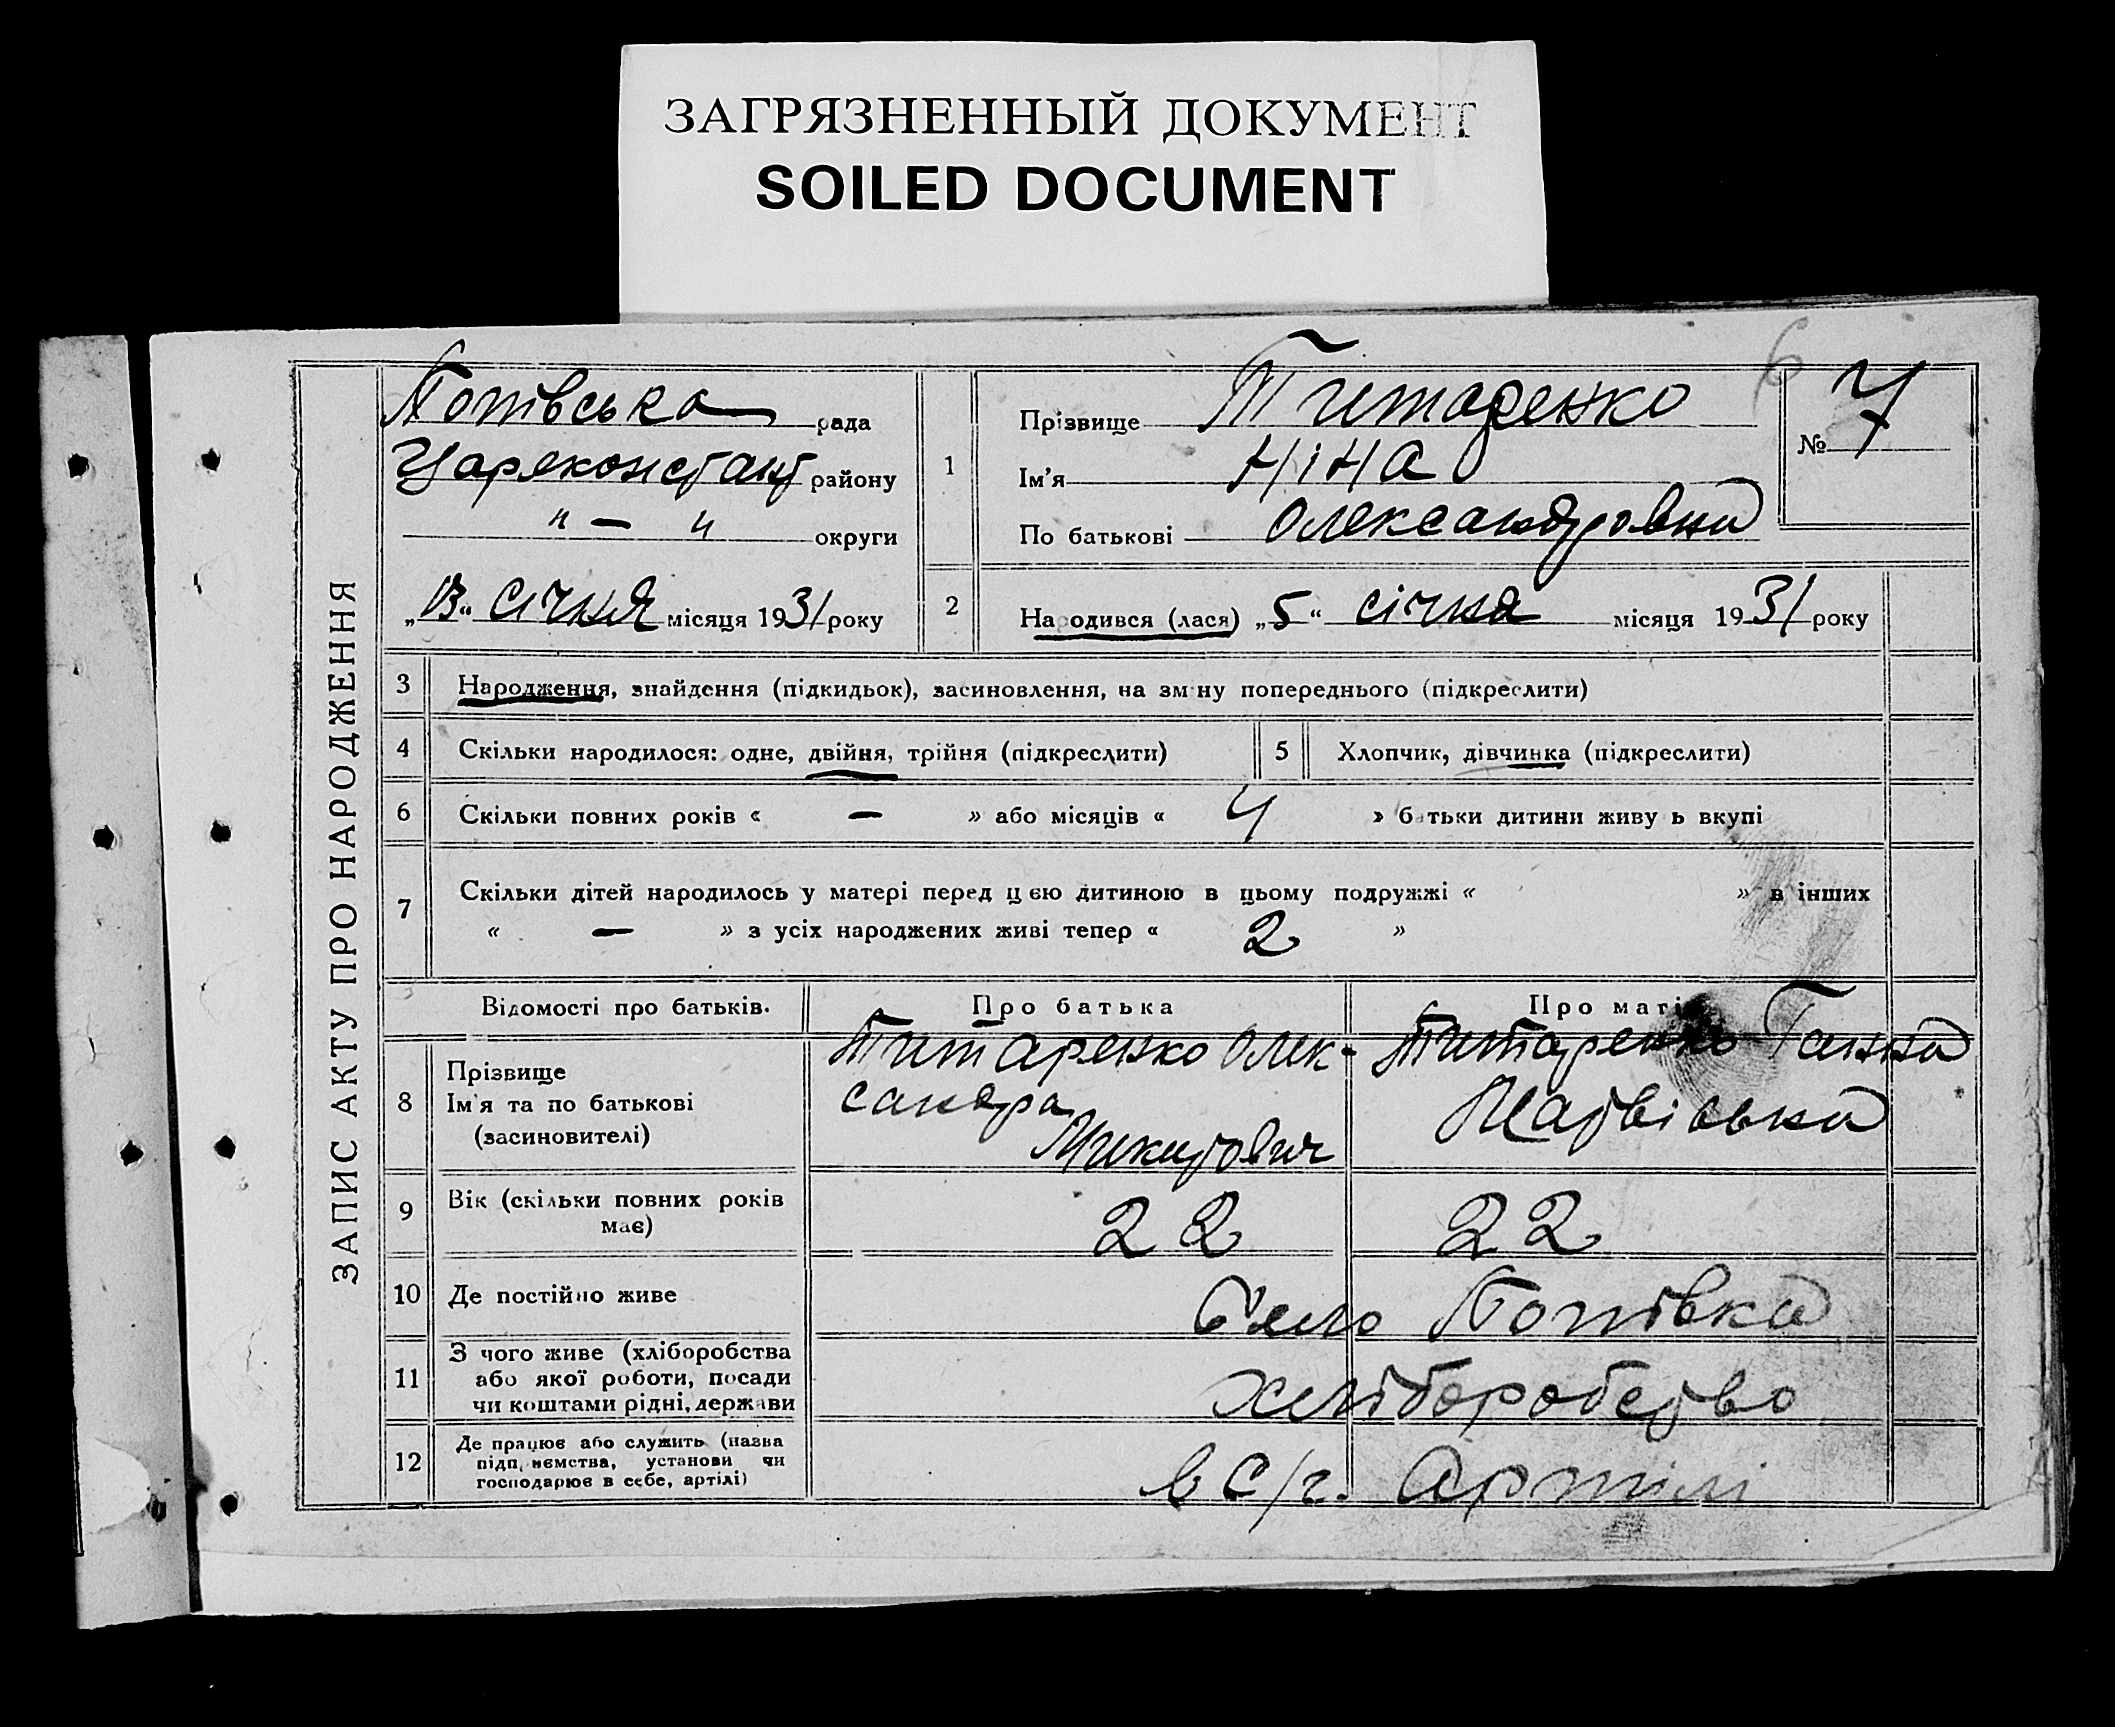 ЗАГРЯЗНЕННЫЙ ДОКУМЕНТ
SOILED DOCUMENT
6
ЗАПИС АКТУ ПРО НАРОДЖЕННЯ
Попівська рада
Цареконстант району
" — " округи
„13“ січня місяця 1931 року
№ 7
1 Прізвище Титаренко
Ім'я Ніна
По батькові Олександровна
2 Народився (лася) „5“ січня місяця 1931 року
3 Народження, знайдення (підкидьок), засиновлення, на зміну попереднього (підкреслити)
4 Скільки народилося: одне, двійня, трійня (підкреслити) 5 Хлопчик, дівчинка (підкреслити)
6 Скільки повних років « — » або місяців « 4 » батьки дитини живуть вкупі
7 Скільки дітей народилось у матері перед цією дитиною в цьому подружжі « » в інших
« — » з усіх народжених живі тепер « 2 »
Відомості про батьків. Про батька Про матір
8 Прізвище
Ім'я та по батькові
(засиновителі)
Титаренко Олек-
сандра
Микитович
Титаренко Ганна
Матвієвна
9 Вік (скільки повних років
має)
22 22
10 Де постійно живе Село Попівка
11 З чого живе (хліборобства
або якої роботи, посади
чи коштами рідні, держави
хліборобство
12 Де працює або служить (назва
підприємства, установи чи
господарює в себе, артілі)
в с/г. артілі